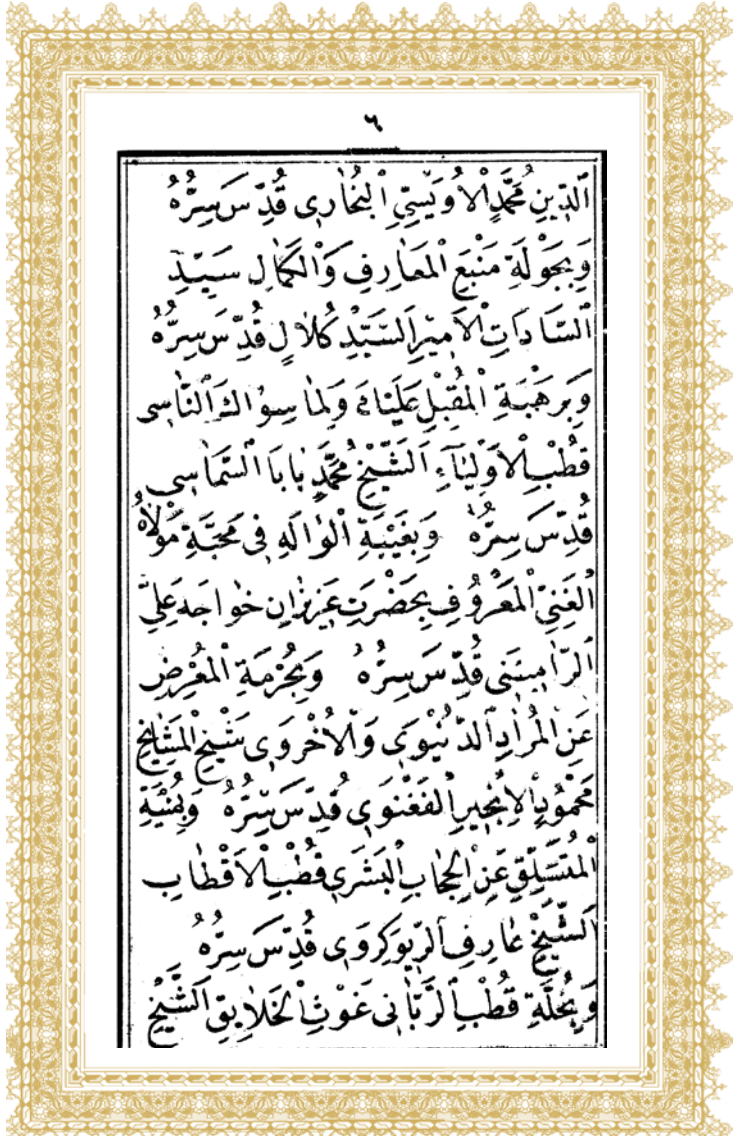 ٦
اَلدّ۪ينِ مُحَمَّدٍ اْلاُوَيْسِيِّ الْبُخَارِى قُدِّسَ سِرُّهُ
وَبِجَوْلَةِ مَنْبَعِ الْمَعَارِفِ وَالْكَمَالِ سَيِّدِ
السَّادَاتِ اْلاَمِيرِ السَّيِّدِ كُلَالِ قُدِّسَ سِرُّهُ
وَبِرَهْبَةِ الْمُقْبِلِ عَلَيْكَ وَلِمَا سِوَاكَ النَّاسِى
قُطْبِ اْلاَوْلِيَآءِ اَلشَّيْخِ مُحَمَّدٍ بَابَا السَّمَاسِى
قُدِّسَ سِرُّهُ وَبِغَيْبَةِ الْوَالِهِ فِى مَحَبَّةِ مَوْلَاهُ
الْغَنِىِّ الْمَعْرُوفِ بِحَضْرَتِ عَزِيزَانِ خوَاجَه عَلِىِّ
الرَّامِيتَنِى قُدِّسَ سِرُّهُ وَبِحُرْمَةِ الْمُعْرِضِ
عَنِ الْمُرَادِ الدُّنْيَوِى وَاْلاُخْرَوِى شَيْخِ الْمَشَايِخِ
مَحْمُودٍ اْلاِنْجِيرِ الْفَغْنَوِى قُدِّسَ سِرُّهُ وَبِمُنْيَةِ
الْمُتَسَلِّقِ عَنِ الْحِجَابِ الْبَشَرِى قُطْبِ اْلاَقْطَابِ
اَلشَّيْخِ عَارِفِ الرِّيوَكِرَوِى قُدِّسَ سِرُّهُ
وَبِخُلَّةِ قُطْبِ الرَّبَّانِى غَوْثِ الْخَلَايِقِ اَلشَّيْخِ